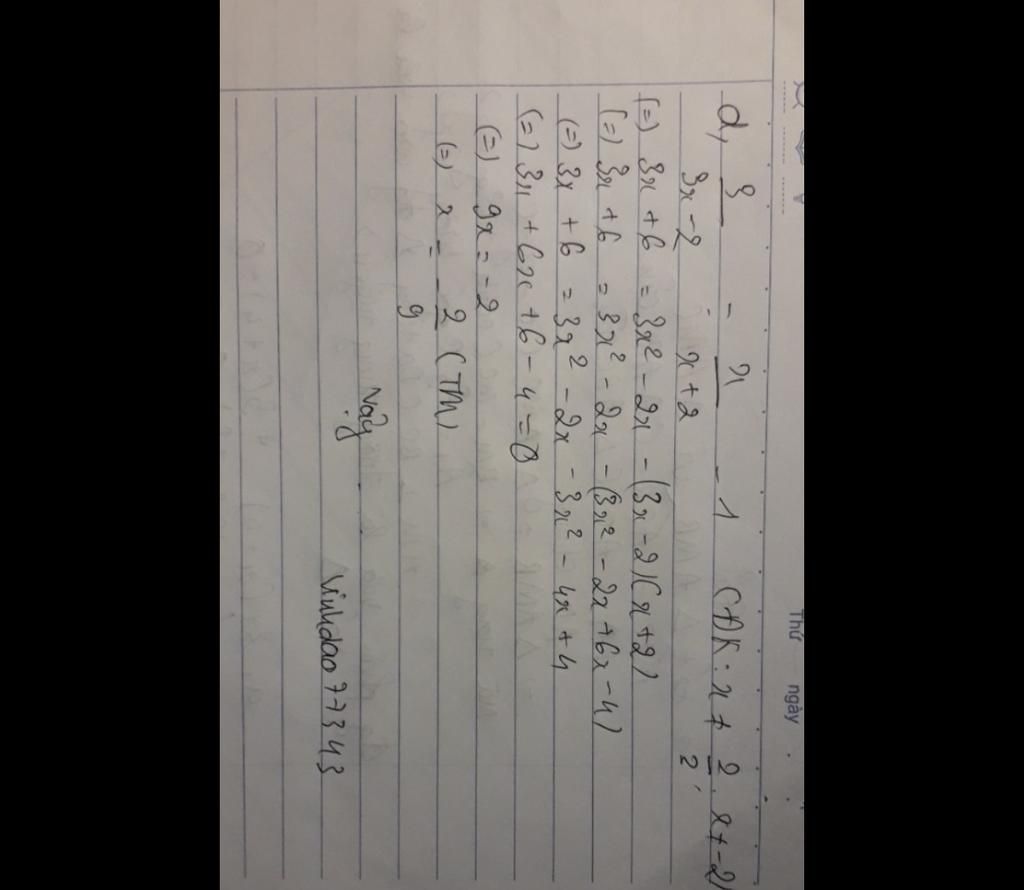 Thứ ngày
d, 3/(3x-2) = x/(x+2) - 1 (ĐK: x ≠ 2/2; x ≠ -2)
(=) 3x + 6 = 3x² - 2x - (3x - 2)(x + 2)
(=) 3x + 6 = 3x² - 2x - (3x² - 2x + 6x - 4)
(=) 3x + 6 = 3x² - 2x - 3x² - 4x + 4
(=) 3x + 6x + 6 - 4 = 0
(=) 9x = -2
(=) x = -2/9 (TM)
Vậy
Vinhdao77343